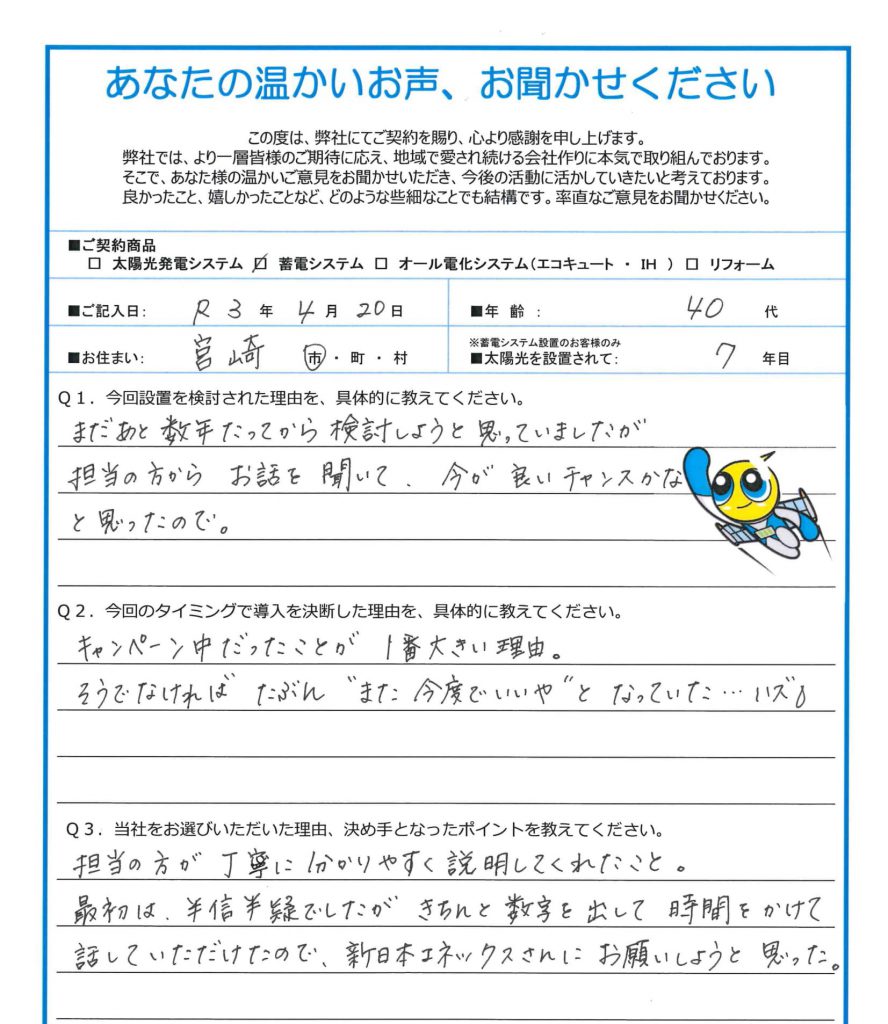 あなたの温かいお声、お聞かせください
この度は、弊社にてご契約を賜り、心より感謝を申し上げます。
弊社では、より一層皆様のご期待に応え、地域で愛され続ける会社作りに本気で取り組んでおります。
そこで、あなた様の温かいご意見をお聞かせいただき、今後の活動に活かしていきたいと考えております。
良かったこと、嬉しかったことなど、どのような些細なことでも結構です。率直なご意見をお聞かせください。
■ご契約商品
□ 太陽光発電システム ☑ 蓄電システム □ オール電化システム(エコキュート ・ IH ) □ リフォーム
■ご記入日: R 3 年 4 月 20 日 ■年 齢 : 40 代
※蓄電システム設置のお客様のみ
■お住まい: 宮崎 市・町・村 ■太陽光を設置されて: 7 年目
Q1.今回設置を検討された理由を、具体的に教えてください。
まだあと数年たってから検討しようと思っていましたが
担当の方から お話を聞いて、今が良いチャンスかな
と思ったので。
Q2.今回のタイミングで導入を決断した理由を、具体的に教えてください。
キャンペーン中だったことが 1番大きい理由。
そうでなければ たぶん "また今度でいいや"と なっていた…ハズ♪
Q3.当社をお選びいただいた理由、決め手となったポイントを教えてください。
担当の方が 丁寧に分かりやすく説明してくれたこと。
最初は、半信半疑でしたが きちんと数字を出して 時間をかけて
話していただけたので、新日本エネックスさんに お願いしようと思った。